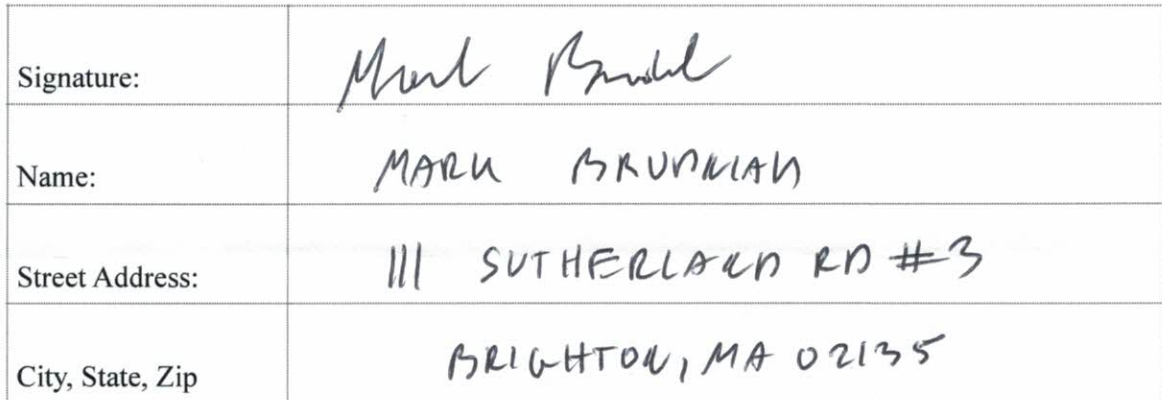 Signature:
Name: MARK
Street Address: 111 SUTHERLAND RD #3
City, State, Zip BRIGHTON, MA 02135